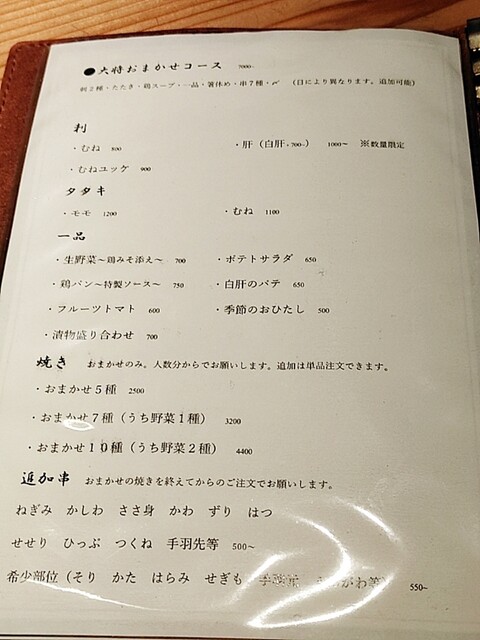 ●大将おまかせコース 7000~
刺2種・たたき・鶏スープ・一品・箸休め・串7種・〆 (日により異なります。追加可能)
刺
・むね 800 ・肝（白肝+700~） 1000~ ※数量限定
・むねユッケ 900
タタキ
・モモ 1200 ・むね 1100
一品
・生野菜～鶏みそ添え～ 700 ・ポテトサラダ 650
・鶏パン～特製ソース～ 750 ・白肝のパテ 650
・フルーツトマト 600 ・季節のおひたし 500
・漬物盛り合わせ 700
焼き おまかせのみ。人数分からでお願いします。追加は単品注文できます。
・おまかせ5種 2500
・おまかせ7種（うち野菜1種） 3200
・おまかせ10種（うち野菜2種） 4400
追加串 おまかせの焼きを終えてからのご注文でお願いします。
ねぎみ かしわ ささ身 かわ ずり はつ
せせり ひっぷ つくね 手羽先等 500～
希少部位（そり かた はらみ せぎも 等） 550~